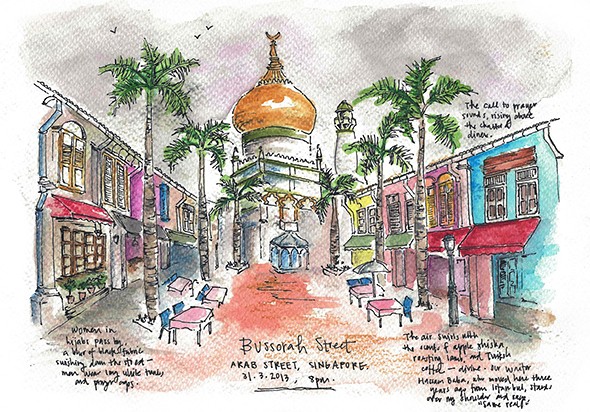 The call to prayer
sounds, rising above
the chatter of
diners.
Women in
hijabs pass by
a blur of black fabric
swishing down the street –
men wear long white tunics
and prayer caps.
Bussorah Street
ARAB STREET, SINGAPORE.
31.3.2013, 8pm.
The air swirls with
the scents of apple shisha,
roasting lamb and Turkish
coffee – divine. Our waiter
Hakeem Baba, who moved here three
years ago from Istanbul, stands
over my shoulder and says,
"Same real!"